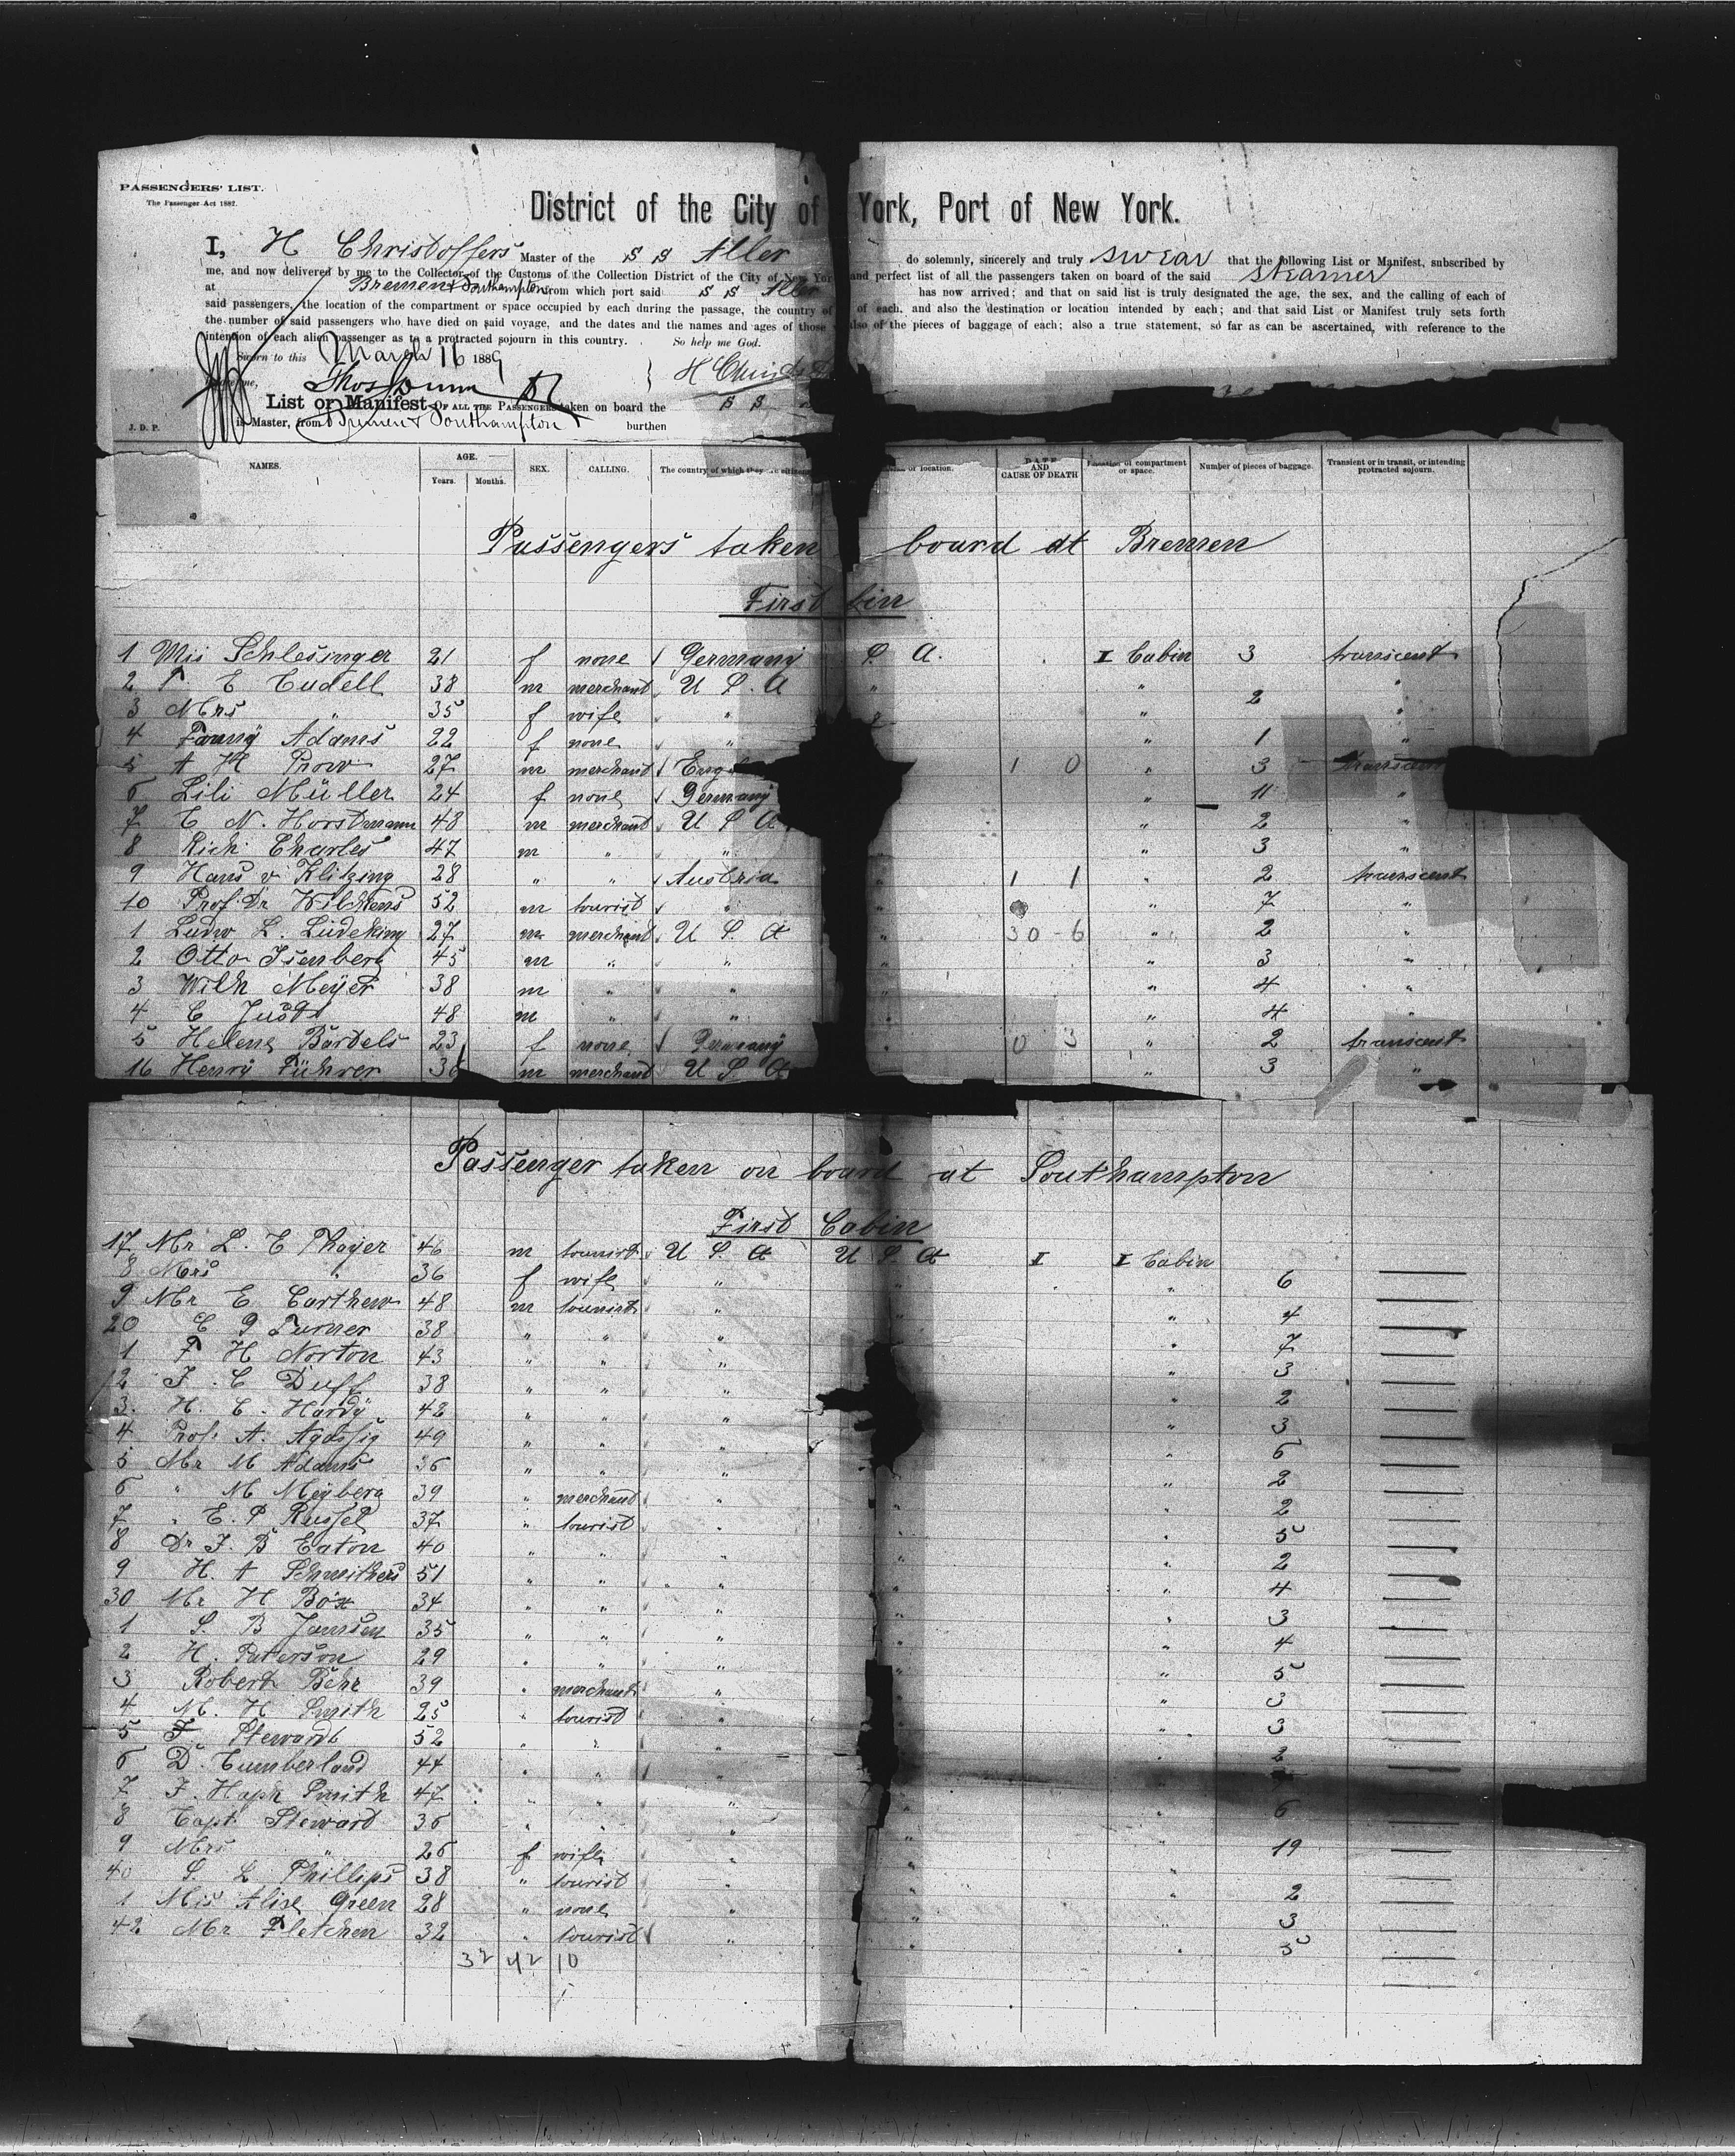 PASSENGERS' LIST.
The Passenger Act 1882.
District of the City of York, Port of New York.
I, H Christoffers Master of the S S Aller do solemnly, sincerely and truly swear that the following List or Manifest, subscribed by
me, and now delivered by me to the Collector of the Customs of the Collection District of the City of New Yor and perfect list of all the passengers taken on board of the said steamer
at Bremen & Southampton from which port said S S Aller has now arrived; and that on said list is truly designated the age, the sex, and the calling of each of
said passengers, the location of the compartment or space occupied by each during the passage, the country of of each, and also the destination or location intended by each; and that said List or Manifest truly sets forth
the number of said passengers who have died on said voyage, and the dates and the names and ages of those also of the pieces of baggage of each; also a true statement, so far as can be ascertained, with reference to the
intention of each alien passenger as to a protracted sojourn in this country. So help me God.
Sworn to this March 16 1889
before me, H Christ
List or Manifest OF ALL THE PASSENGERS taken on board the S S
J. D. P. is Master, from Bremen & Southampton burthen
NAMES. AGE. Years. Months. SEX. CALLING. The country of which they are citizens or location. DATE AND CAUSE OF DEATH Location of compartment or space. Number of pieces of baggage. Transient or in transit, or intending protracted sojourn.
Passengers taken board at Bremen
First bin
1 Mis Schlesinger 21 f none Germany S. A. I Cabin 3 transcent
2 F E Cudell 38 m merchant U S. A " " 2 "
3 Mrs " 35 f wife " " "
4 Fanny Adams 22 f none " " 1 "
5 A H Prow 27 m merchant Engl 1 0 " 3 transcent
6 Lili Müller 24 f none Germany " 11 "
7 C N. Horstmann 48 m merchant U S A " 2 "
8 Rich Charles 47 m " " " 3 "
9 Hans v Klitzing 28 " " Austria " 1 1 " 2 transcent
10 Prof Dr Wilckens 52 m tourist " " " 7 "
1 Ludw L. Lüdeking 27 m merchant U S. A " 30-6 " 2 "
2 Otto Isenberg 45 m " " " 3 "
3 Wilh Meyer 38 m " " " 4 "
4 C Just 48 m " " " 4 "
5 Helene Bartels 23 f none Germany " 0 3 " 2 transcent
16 Henry Führer 36 m merchant U S A " 3 "
Passenger taken on board at Southampton
First Cabin
17 Mr L. E Thayer 46 m tourist U S. A U S. A I I Cabin
8 Mrs " 36 f wife " " " 6
9 Mr E Carthew 48 m tourist " " 4
20 C G Turner 38 " " " " 7
1 F H Norton 43 " " " " 3
2 J. C Duff 38 " " " " 2
3. H. C. Hardy 42 " " " " 3
4 Prof. A. Agassiz 49 " " " " 6
5 Mr M Adams 36 " " " " 2
6 " M Meyberg 39 " merchant " " " 2
7 " E. P Russel 37 " tourist " " 5
8 Dr J. B Eaton 40 " " " " " 2
9 H. A Schmithers 51 " " " " " 4
30 Mr H Box 34 " " " " " 3
1 S. B Jansen 35 " " " " " 4
2 H. Paterson 29 " " " " " 5
3 Robert Behr 39 " merchant " " 3
4 M. H Smith 25 " tourist " " 3
5 F Steward 52 " " " " " 2
6 D. Cumberland 44 " " " "
7 J. Haph Smith 47 " " " " " 6
8 Capt Steward 36 " " " " 19
9 Mrs " 26 f wife " "
40 S. L Phillips 38 " tourist " " 2
1 Mis Alise Green 28 " none " " 3
42 Mr Fletchen 32 " tourist " " " 5
32 42 10